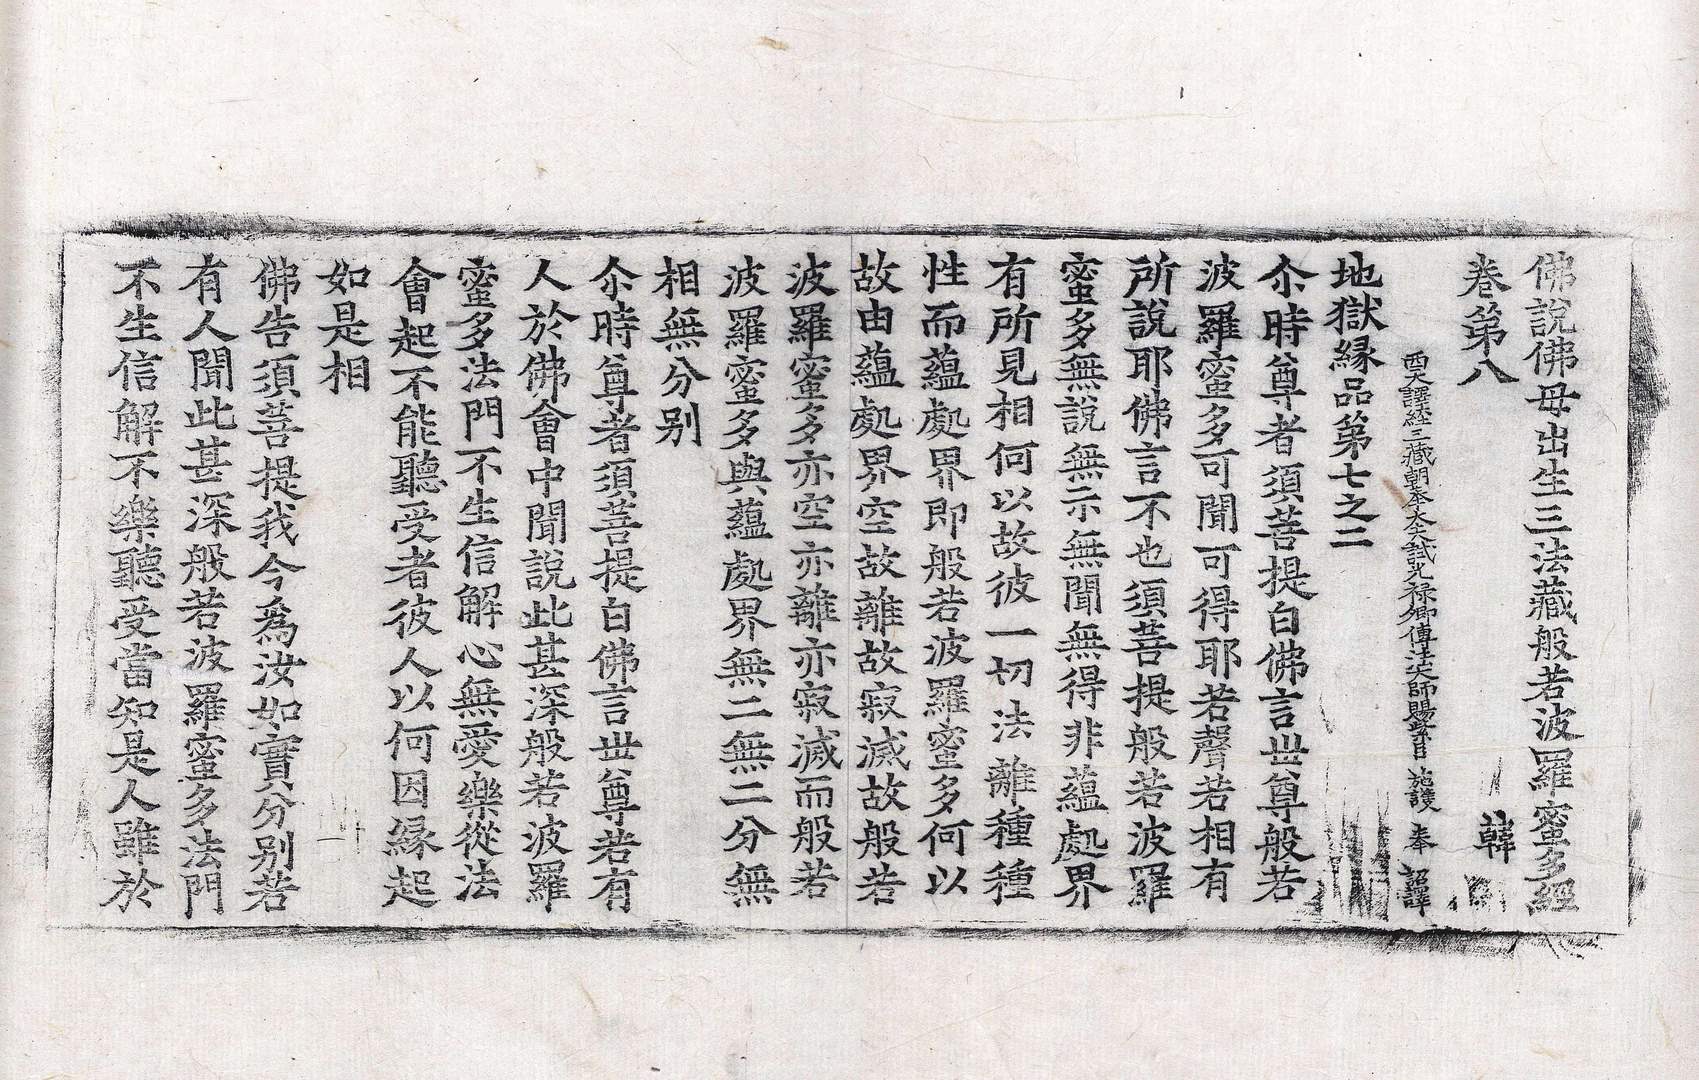 佛說佛母出生三法藏般若波羅蜜多經
卷第八　韓
西天譯經三藏朝奉大夫試光祿卿傳法大師賜紫臣 施護 奉 詔譯
地獄緣品第七之二
尒時尊者須菩提白佛言世尊般若
波羅蜜多可聞可得耶若聲若相有
所說耶佛言不也須菩提般若波羅
蜜多無說無示無聞無得非蘊處界
有所見相何以故彼一切法離種種
性而蘊處界即般若波羅蜜多何以
故由蘊處界空故離故寂滅故般若
波羅蜜多亦空亦離亦寂滅而般若
波羅蜜多與蘊處界無二無二分無
相無分别
尒時尊者須菩提白佛言世尊若有
人於佛會中聞說此甚深般若波羅
蜜多法門不生信解心無愛樂從法
會起不能聽受者彼人以何因緣起
如是相
佛告須菩提我今爲汝如實分别若
有人聞此甚深般若波羅蜜多法門
不生信解不樂聽受當知是人雖於